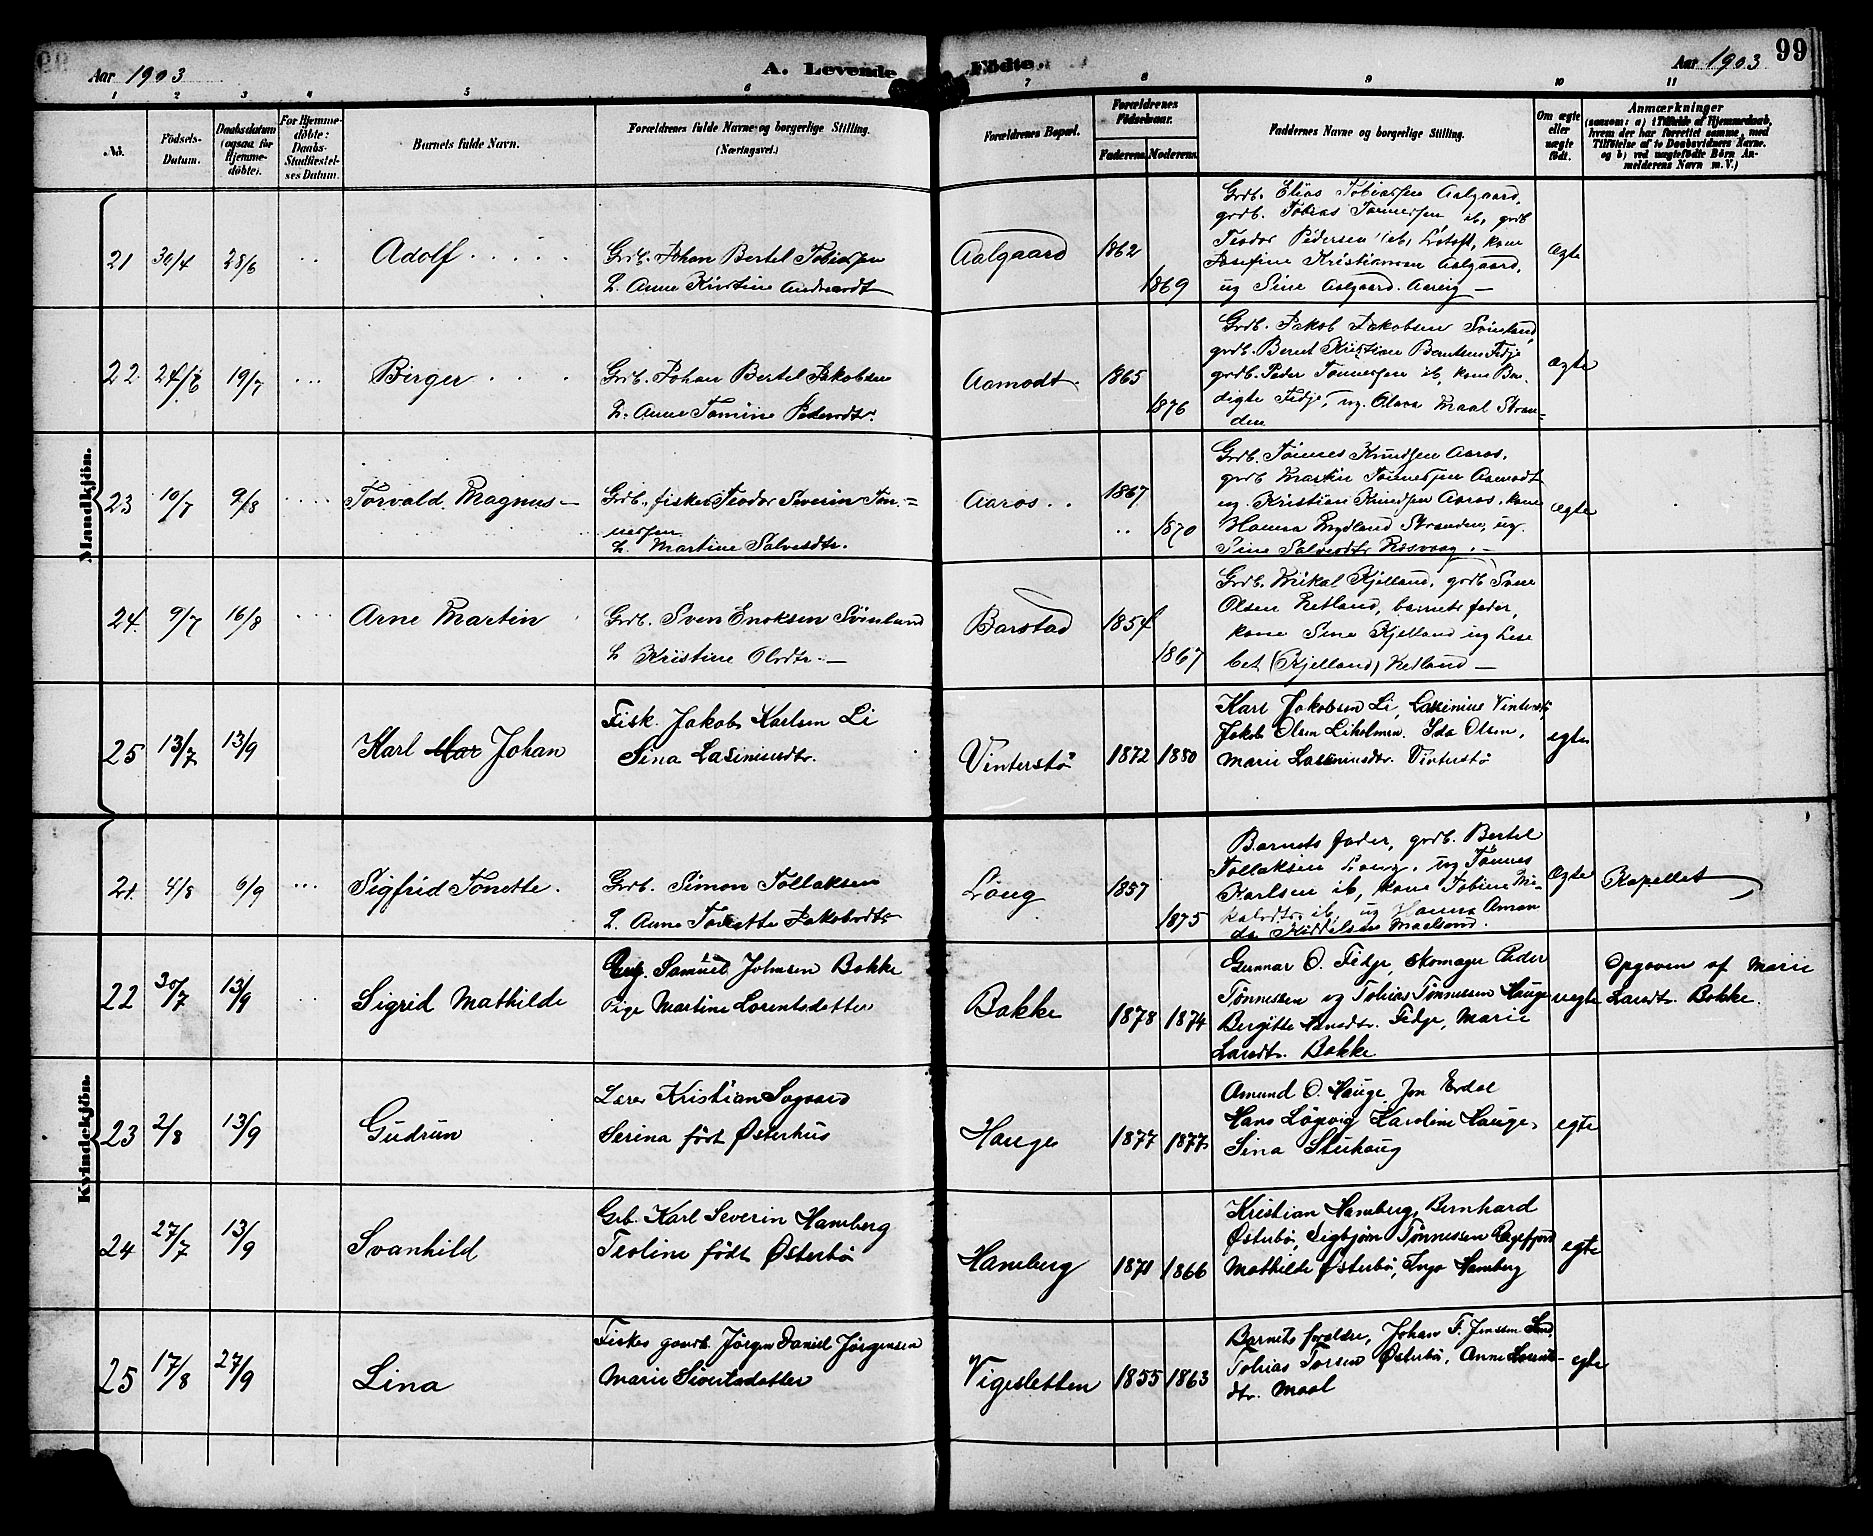 99
Aar 1903
A. Levende Födte.
Aar 1903
1 2 3 4 5 6 7 8 9 10 11
No.
Födsels-
Datum.
Daabsdatum
(ogsaa for
Hjemme-
döbte).
For Hjemme-
döbte:
Daabs-
Stadfæstel-
ses Datum.
Barnets fulde Navn.
Forældrenes fulde Navne og borgerlige Stilling.
(Næringsvei.)
Forældrenes Bopæl.
Forældrenes
Födselsaar.
Faderens. Moderens.
Faddernes Navne og borgerlige Stilling.
Om ægte
eller
uægte
födt.
Anmærkninger
(saasom: a) i Tilfælde af Hjemmedaab,
hvem der har forrettet samme, med
Tilföielse af to Daabsvidners Navne.
og b) ved uægtefödte Börn An-
melderens Navn m. V.)
Mandkjön.
21 30/4 28/6 Adolf
Grdb. Johan Bertel Tobiassen
Anne Kirstine
Aalgaard 1862 1869
Grdb. Elias Tobiassen Aalgaard,
grdb. Tobias Tønnessen ib, grdb
Teodor Pedersen ib, kone
Josefine Kristiansen Aalgaard,
ug Sine Aalgaard.
ægte
22. 19/7 Birger
Grdb. Johan Bertel Jakobsen
Anne Tomine Pedersdtr.
Aamodt. 1865 1876
Grdb. Jakob Jakobsen Svinland,
grdb. Bernt Kristian Berntsen Fidje
grdb. Peder Tønnessen ib, kone Ben-
digte Fidje, ug. Olava Maal Stran-
den
ægte
23 10/7 9/8 Torvald Magnus
Grdb., fisker Teodor Severin Tøn-
nessen
Martine Salvesdtr.
Aaros 1867 1870
Grdb. Tønnes Knudsen Aaros,
grdb Martin Tønnessen Aamodt
ug. Kristian Knudsen Aaros, kone
Hanna Stranden, ug.
Sine
ægte
24. 9/7 16/8 Arne Martin
Grdb. Sven Enoksen Svinland
Kristine Olsdtr.
Barstad 1854 1867
Grdb. Mikal Kjelland, grdb Sven
Olsen Netland, barnets fader,
kone Sine Kjelland ug Lisa
bet (Kjelland) Netland
25 13/7 13/9 Karl Johan
Fisk. Jakob Karlsen Li
Sina Lasiniusdtr.
Vinterstø 1872 1880
Karl Jakobsen Li, Lasinius Vinterstø,
Jakob Olsen Liholmen. Ida Olsen,
Marie Lasiniusdtr. Vinterstø
egte
Kvindekjön.
21. 4/8 6/9 Sigfrid Tonette.
Grdb. Simon Tollaksen
Anne Tonette Jakobsdtr
Löug 1857 1875
Barnets fader, grdb. Bertel
Tollaksen Loug, ug Tønnes
Karlsen ib, kone Tobine Mi-
kalsdtr ib, ug Hanna Aman
da
ægte Kapellet
22 30/7 13/9 Sigrid Mathilde
Ung. Samuel Johnsen Bakke
Pige Martine Lorentsdatter
Bakke 1878 1874
Gunnar O. Fidje, skomager Peder
Tønnessen og Tobias Tønnessen Hauge
Bergitte Fidje, Marie
Larsdtr. Bakke
uegte
Opgaven af Marie
Larsdtr. Bakke.
23 2/8 13/9 Gudrun
Lærer Kristian Sogaard
Serina født Østerhus
Hauge 1877 1877
Amund O. Hauge, Jon Erdal
Hans Løgvig Karoline Hauge,
Sina Stuhaug
egte
24 27/7 13/9 Svanhild
Grb. Karl Severin Hamberg
Teoline født Østerbø
Hamberg 1871 1866
Kristian Hamberg, Bernhard
Østerbø, Sigbjørn Tønnessen Regefjord
Mathilde Østerbø, Inga Hamberg
egte
25 17/8 27/9 Lina
Fisker gaardb. Jørgen Daniel Jørgensen
Marie Sivertsdatter
Vigesletten 1855 1863
Barnets foreldre, Johan F. Jenssen
Tobias Torsen Østerbø, Anne Lorents-
dtr. Maal
egte